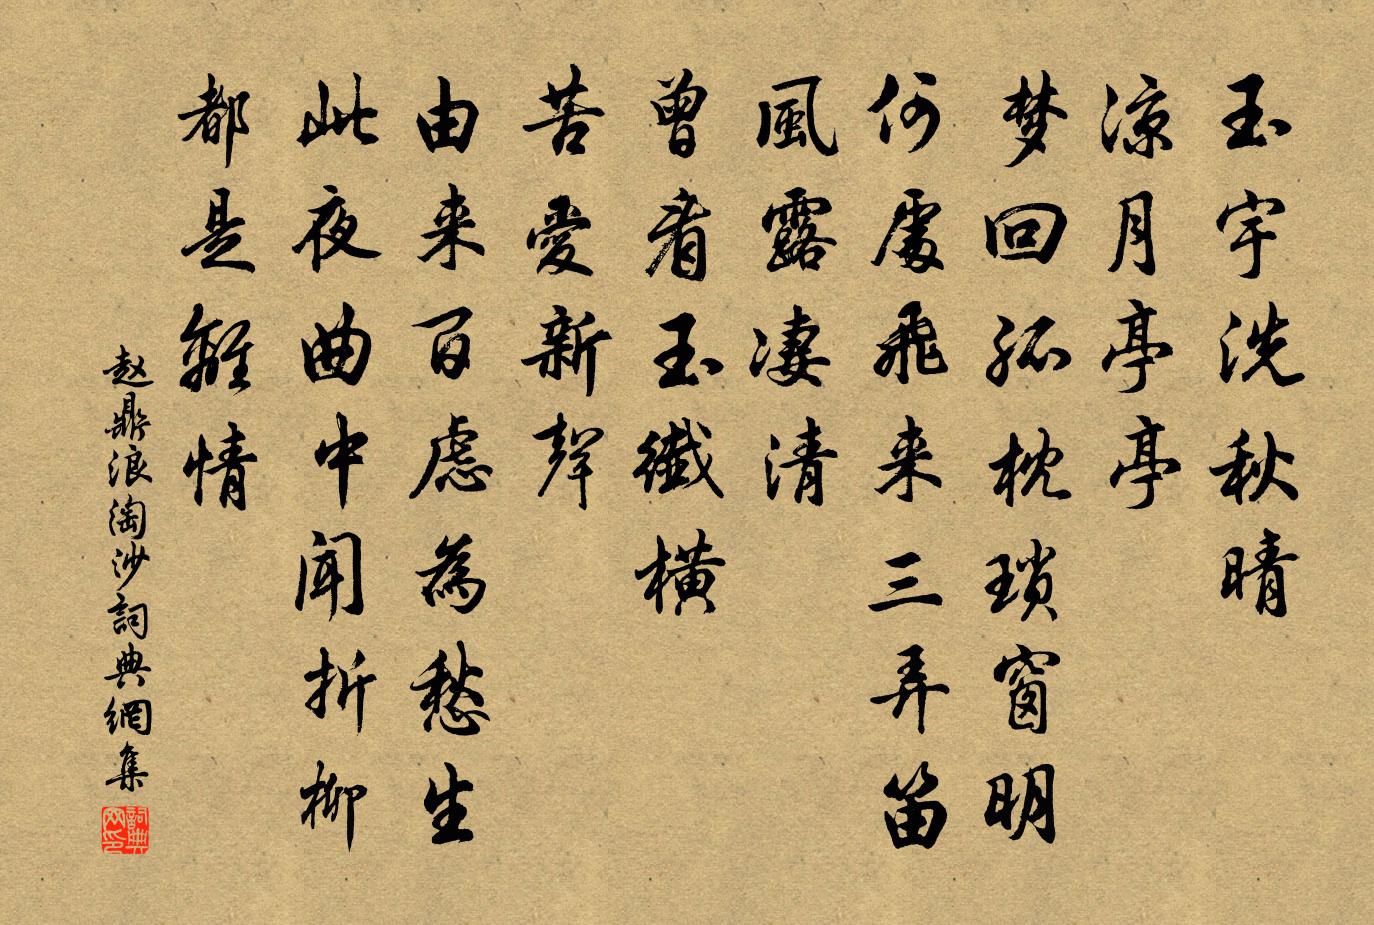 玉宇洗秋晴
凉月亭亭
梦回孤枕瑣窗明
何處飛来三弄笛
風露凄清
曾看玉纖橫
苦愛新聲
由来百慮為愁生
此夜曲中聞折柳
都是離情
赵鼎浪淘沙詞典網集
詞典网印